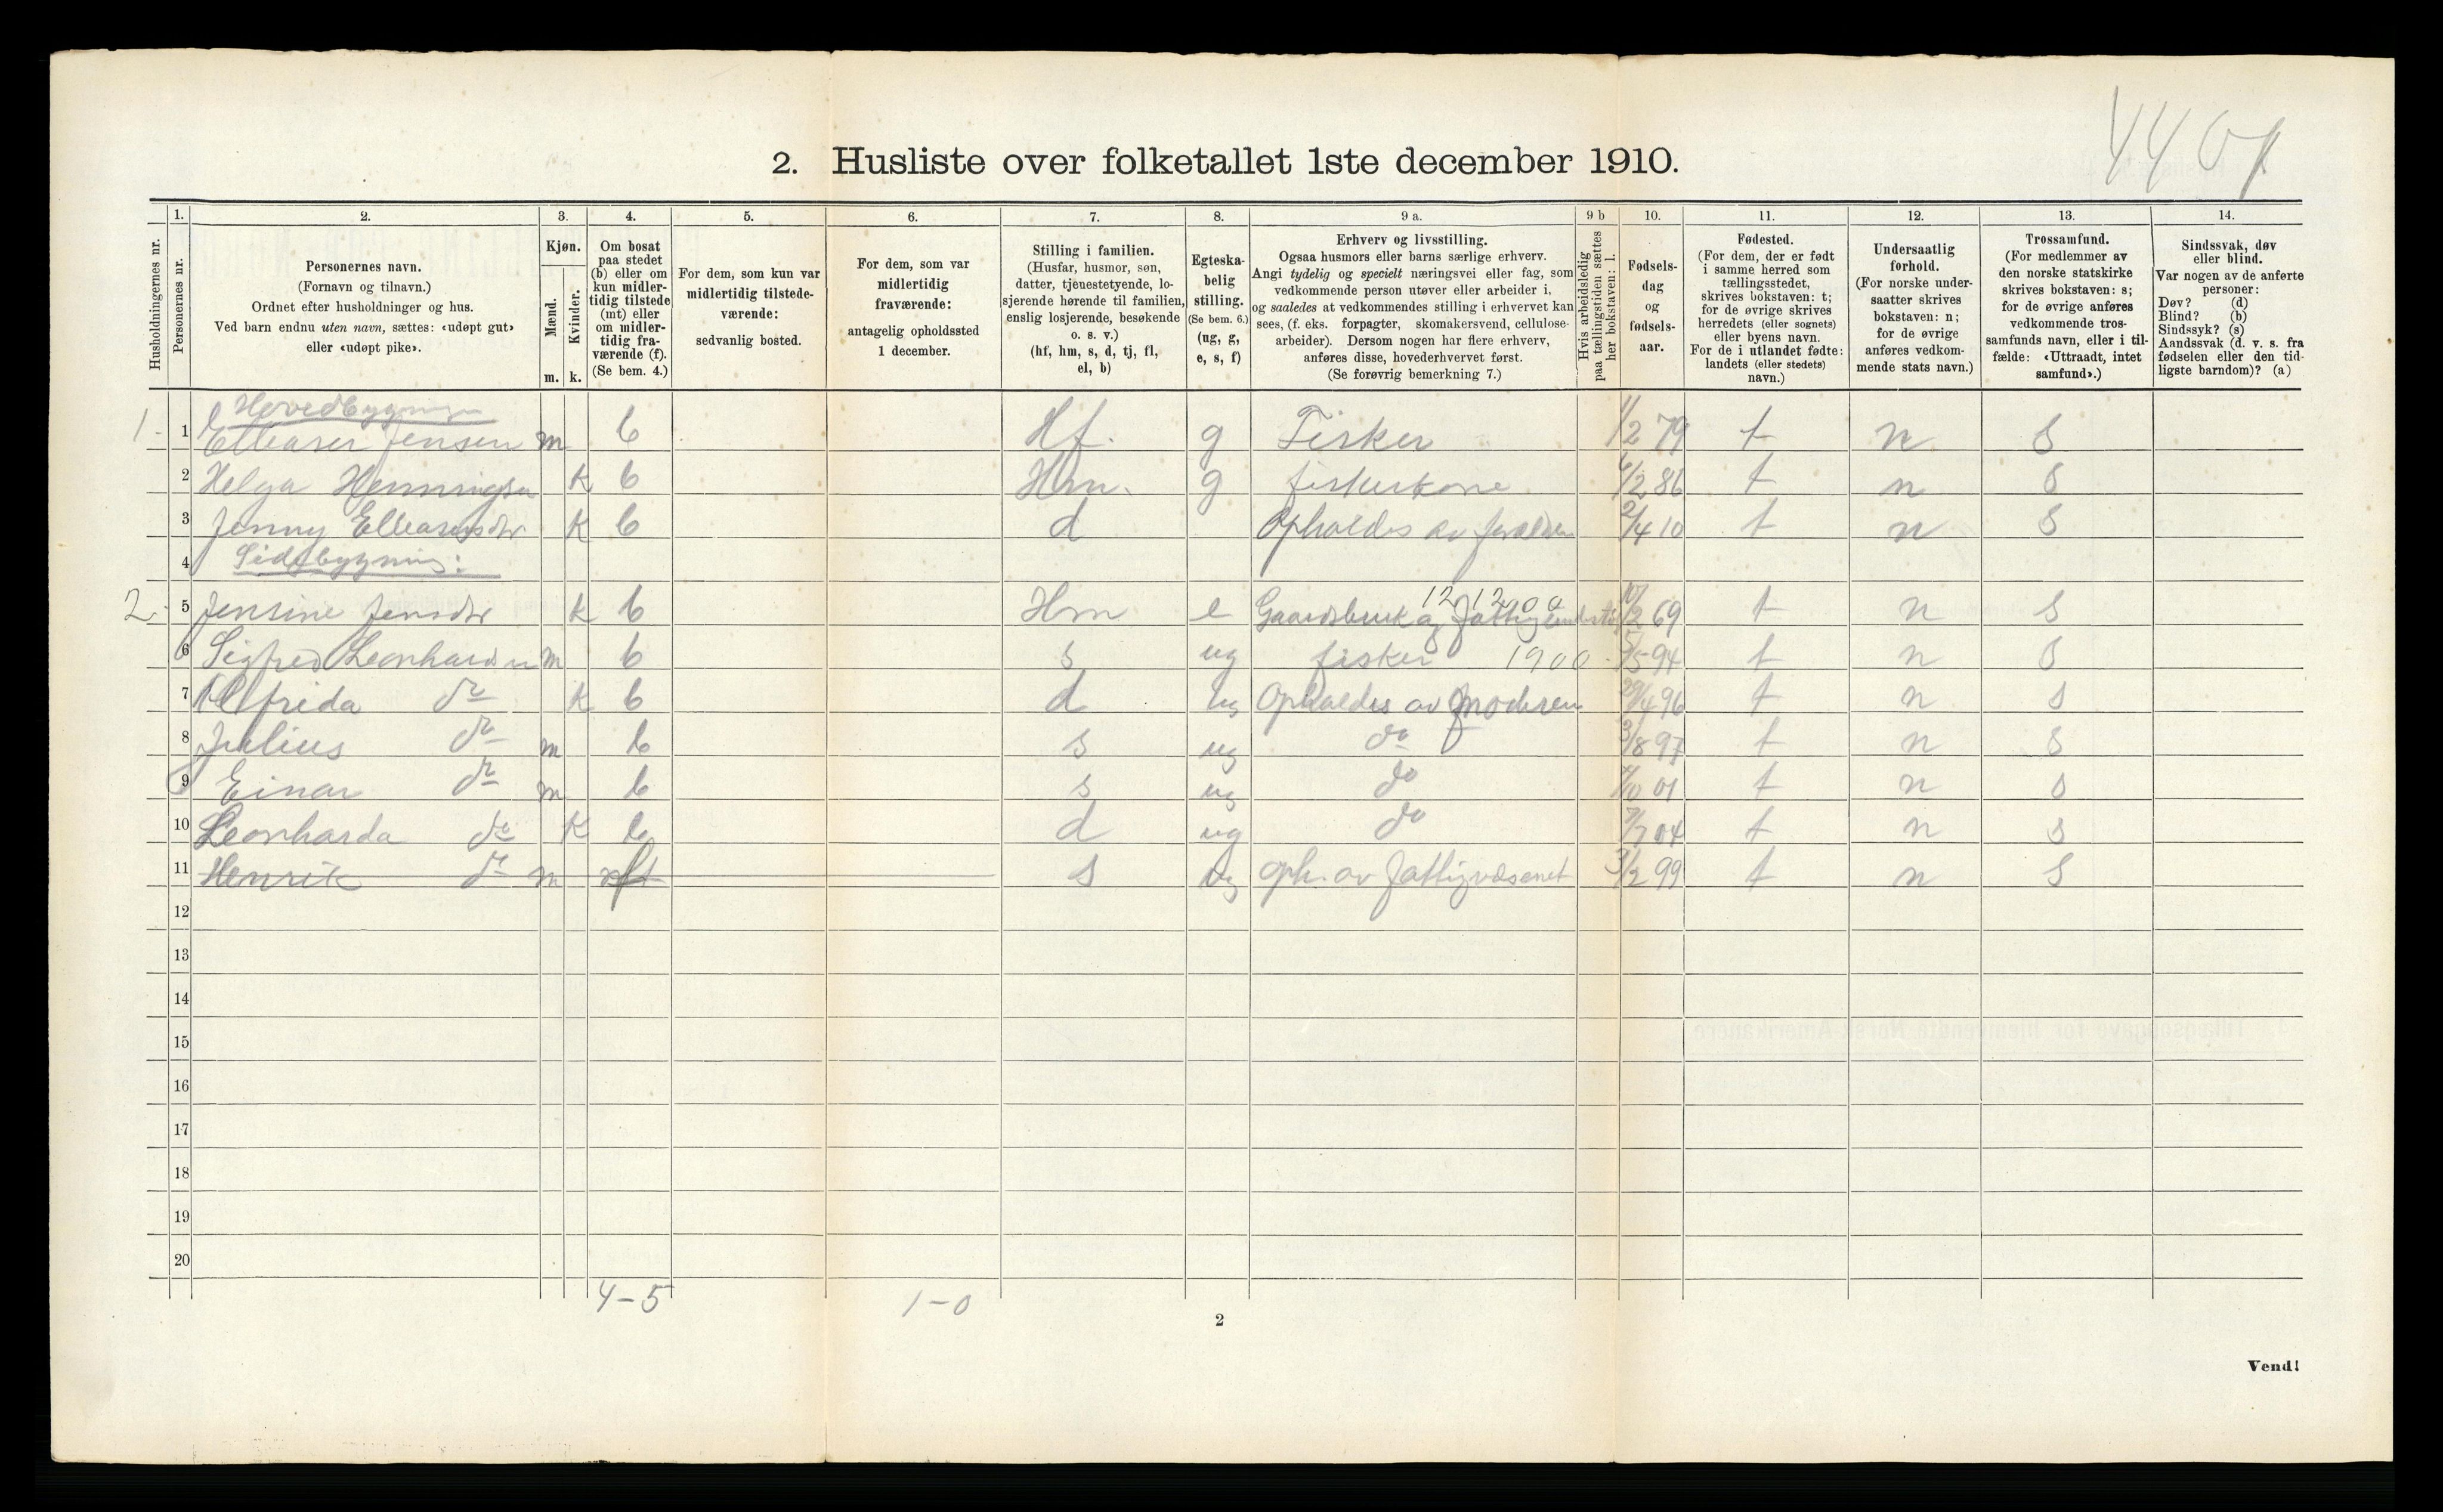 2. Husliste over folketallet 1ste december 1910.
Husholdningernes nr.
1.
Personernes nr.
2.
Personernes navn.
(Fornavn og tilnavn.)
Ordnet efter husholdninger og hus.
Ved barn endnu uten navn, sættes: «udøpt gut»
eller «udøpt pike».
3.
Kjøn.
Mænd.
Kvinder.
m. k.
4.
Om bosat
paa stedet
(b) eller om
kun midler-
tidig tilstede
(mt) eller
om midler-
tidig fra-
værende (f).
(Se bem. 4.)
5.
For dem, som kun var
midlertidig tilstede-
værende:
sedvanlig bosted.
6.
For dem, som var
midlertidig
fraværende:
antagelig opholdssted
1 december.
7.
Stilling i familien.
(Husfar, husmor, søn,
datter, tjenestetyende, lo-
sjerende hørende til familien,
enslig losjerende, besøkende
o. s. v.)
(hf, hm, s, d, tj, fl,
el, b)
8.
Egteska-
belig
stilling.
(Se bem. 6.)
(ug, g,
e, s, f)
9 a.
Erhverv og livsstilling.
Ogsaa husmors eller barns særlige erhverv.
Angi tydelig og specielt næringsvei eller fag, som
vedkommende person utøver eller arbeider i,
og saaledes at vedkommendes stilling i erhvervet kan
sees, (f. eks. forpagter, skomakersvend, cellulose-
arbeider). Dersom nogen har flere erhverv,
anføres disse, hovederhvervet først.
(Se forøvrig bemerkning 7.)
9 b
Hvis arbeidsledig
paa tællingstiden sættes
her bokstaven: l.
10.
Fødsels-
dag
og
fødsels-
aar.
11.
Fødested.
(For dem, der er født
i samme herred som
tællingsstedet,
skrives bokstaven: t;
for de øvrige skrives
herredets (eller sognets)
eller byens navn.
For de i utlandet fødte:
landets (eller stedets)
navn.)
12.
Undersaatlig
forhold.
(For norske under-
saatter skrives
bokstaven: n;
for de øvrige
anføres vedkom-
mende stats navn.)
13.
Trossamfund.
(For medlemmer av
den norske statskirke
skrives bokstaven: s;
for de øvrige anføres
vedkommende tros-
samfunds navn, eller i til-
fælde: «Uttraadt, intet
samfund».)
14.
Sindssvak, døv
eller blind.
Var nogen av de anførte
personer:
Døv? (d)
Blind? (b)
Sindssyk? (s)
Aandssvak (d. v. s. fra
fødselen eller den tid-
ligste barndom)? (a)
Hovedbygning
1 1 Elleaser Jensen m b Hf. g Fisker 1/2 79 t n S
2 Helga Henningsn k b Hm. g fiskerkone 6/2 86 t n S
3 Jenny Elleasersdtr k b d Opholdes av forældren 2/4 10 t n S
4 Sidebygning:
12 1200
2 5 Jensine Jensdtr k b Hm e Gaardsbruk og 10/2 69 t n S
6 Sigfred Leonhardsen m b s ug fisker 1900 5/5 94 t n S
7 Alfrida do k b d ug Opholdes av moderen 29/4 96 t n S
8 Julius do m b s ug do 3/8 97 t n S
9 Einar do m b s ug do 4/10 01 t n S
10 Leonharda do k b d ug do 7/7 04 t n S
11 Henrik do m s ug oph. av fattigvæsenet 3/2 99 t n S
12
13
14
15
16
17
18
19
20
4-5
1-0
2
Vend!